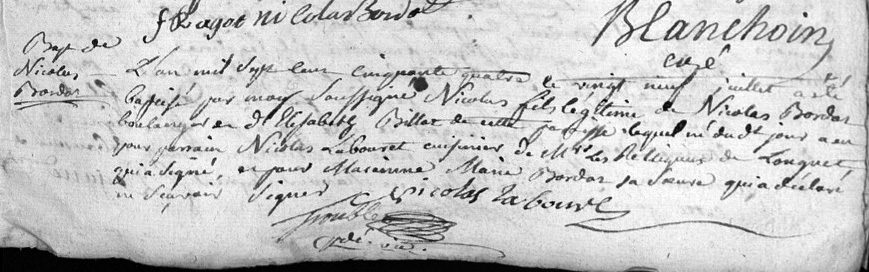 f Ragot nicolas Bordot
Blanchoin
curé
Bapt de
Nicolas
Bordas
L'an mil sept cent cinquante quatre le vingt neuf juillet a été
baptisé par nous soussigné Nicolas fils légitime de Nicolas Bordas
boulanger et d'Elisabeth Billet de cette paroisse lequel né dudt jour a eu
pour parrain Nicolas Labouret cuisinier de Mrs Les Religieux de Longuet
qui a signé, et pour Maraine Marie Bordas sa soeure qui a déclaré
ne sçavoir signer Nicolas Labouret